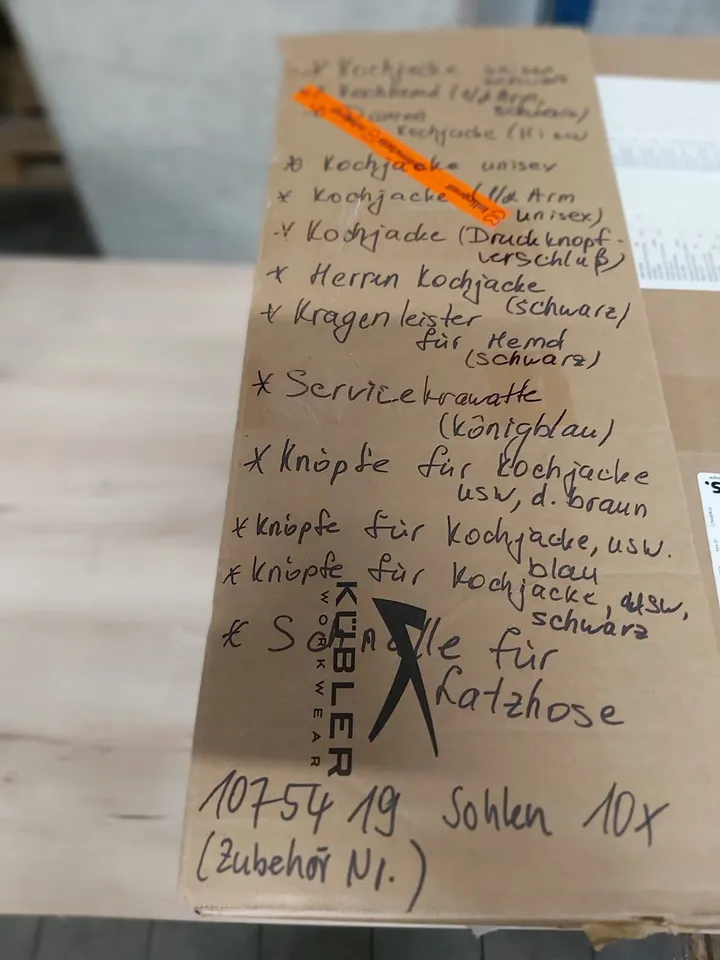 * Kochjacke unisex
schwarz
* Kochhemd (1/2 Arm,
schwarz)
Damen
Kochjacke
* Kochjacke unisex
* Kochjacke (1/2 Arm
unisex)
* Kochjacke (Druckknopf-
verschluß)
* Herren Kochjacke
(schwarz)
* Kragenleister
für Hemd
(schwarz)
* Servicekrawatte
(königblau)
* Knöpfe für Kochjacke
usw, d. braun
* Knöpfe für Kochjacke, usw.
blau
* Knöpfe für Kochjacke, usw,
schwarz
* Schnalle für
Latzhose
KÜBLER
WORKWEAR
1075419 Sohlen 10x
(Zubehör Nr.)